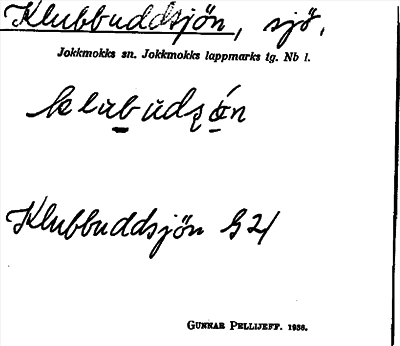 Klubbuddsjön, sjö.
Jokkmokks sn. Jokkmokks lappmarks tg. Nb l.
Klubbuddsjön G21
GUNNAR PELLIJEFF. 1956.